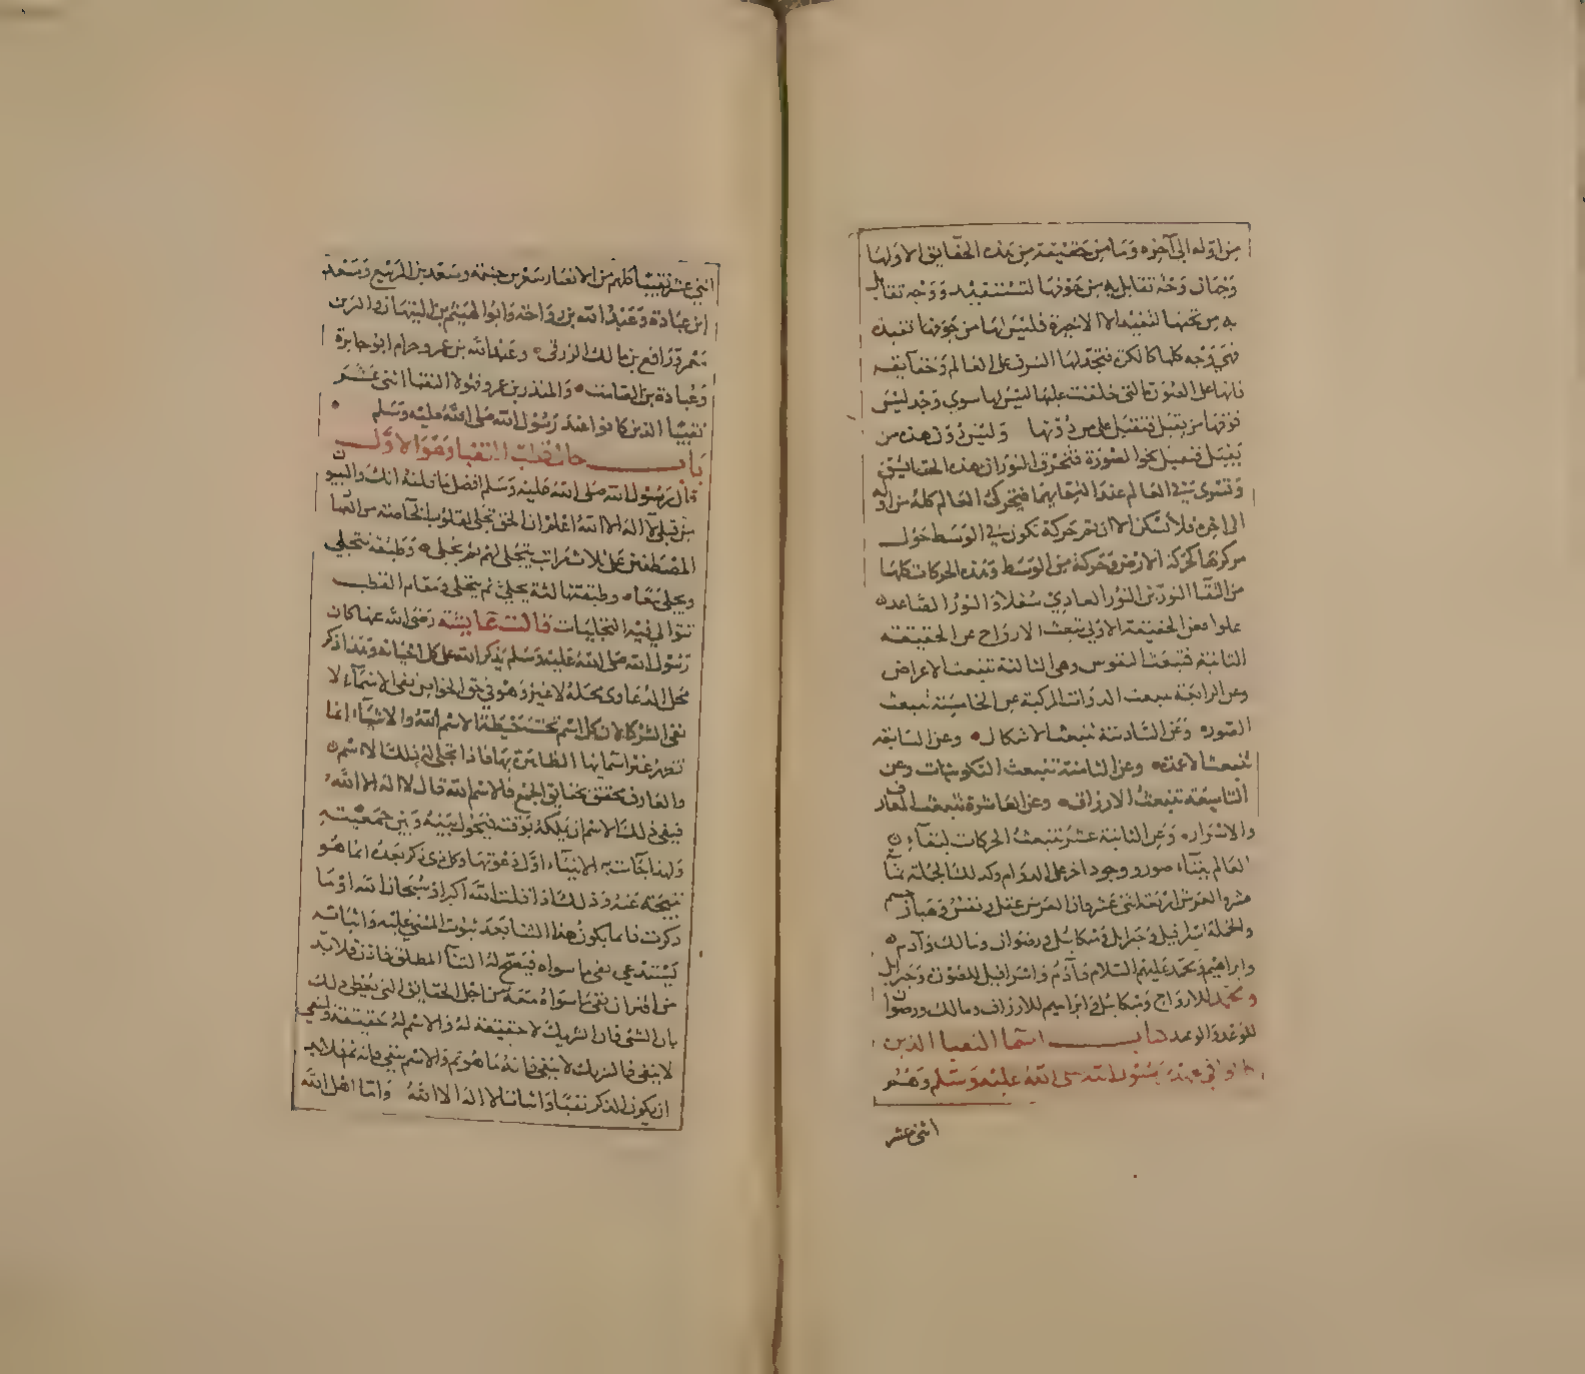 من اوله الى آخره وما من حقيقة من هذه الحقايق الا ولها
وجهان وجه تقابل به من فوقها لتستفيد ووجه تقابل
به من تحتها لتفيد الا الاخيرة فليس لها من تحتها تفيده
فهي وجه كلها كالكرة فتجد لها الشرف على العالم وحقايقه
فانها على الصورة التي خلقت عليها ليس لها سوى وجه ليس
فوقها من يقبل فتقبل على من دونها وليس دون هذه من
يقبل فتميل نحو الصورة فتخرق النور ان هذه الحقايق
وتسرى في العالم عند التقايهما فيتحرك العالم كله من اوله
الى اخره فلا تسكن الا ان ثم حركة تكون في الوسط حول
مركزها كحركة الارض وحركة من الوسط وهذه الحركات كلها
من التقا النورين النور العادي سفلا والنور الصاعد
علوا فعن الحقيقة الاولى تنبعث الارواح عن الحقيقة
الثانية فتنبعث النفوس وعن الثالثة تنبعث الاعراض
وعن الرابعة تنبعث الذوات المركبة عن الخامسة تنبعث
الصور وعن السادسة تنبعث الاشكال وعن السابعة
تنبعث الاغذيه وعن الثامنة تنبعث التكوينات وعن
التاسعة تنبعث الارزاق وعن العاشرة تنبعث المعارف
والاسرار وعن الثانية عشر تنبعث الحركات لبقاء
العالم ببقاء صور ووجود اخر على الدوام وكذلك الجملة
العرش اربعة اثنى عشر وان العرش عقل ونفس وهبا وجسم
والحملة اسرافيل وجبرايل وميكايل ورضوان ومالك وآدم
وابراهيم ومحمد عليهم السلام فآدم واسرافيل للصور وجبرايل
ومحمد للارواح وميكايل وابراهيم للارزاق ومالك ورضوان
للوعد والوعيد باب اسما النقبا الذين
كانوا في عهد رسول الله صلى الله عليه وسلم وهم
اثنى عشر
اثني عشر نقيبا كلهم من الانصار سعد بن خيثمة وسعد بن الربيع وسعد
ابن عبادة وعبد الله بن رواحة وابو الهيثم بن التيهان والبراء بن
معرور ورافع بن مالك الزرقي وعبد الله بن عمرو حرام ابو جابرة
وعبادة بن الصامت والمنذر بن عمرو فهولا النقبا اثنى عشر
نقيبا الذين كانوا عند رسول الله صلى الله عليه وسلم
باب حال قطب النقبا وهو الاول
قال رسول الله صلى الله عليه وسلم افضل ما قلته انا والنبيون
من قبلي لا اله الا الله اعلم ان الحق تجلى لقلوب الخاصة من العبا
المصطفين على ثلاث مراتب يتجلى لهم ثم يجلى وطبقة يتجلى
ويجلى معا وطبقة ثالثة يجلى ثم يتجلى ومقام القطب
تتوالى فيه التجليات قالت عايشة رضي الله عنها كان
رسول الله صلى الله عليه وسلم يذكر الله على كل احيانه وهذا ذكر
محل الدعاوى محله لا غير وهو في حق الخواص نفي الاسماء لا
نفي الشركا لان كل اسم تحت حيطة الاسم الله والاشياء انما
تصدر عن اسمائها الظاهرة بها فاذا تجلى له ذلك الاسم
والعارف محقق بحقايق الجمع فالاسم الله قال لا اله الا الله
فينفي ذلك الاسم ان يملكه بوقته فيحول بينه وبين جمعيته
ولهذا جات به الانبياء اول دعوتها وكل ذكر بعده انما هو
نتيجة عنه وذلك اذا قلت الله اكبر او سبحان الله او ما
ذكرت فانما يكون هذا الثنا بعد ثبوت المثني عليه واثباته
يستدعي نفي ما سواه فيصح له الثنا المطلق فاذن فلا بد
من اقتران نفي ما سواه معه من اجل الحقايق التي تعطي ذلك
بان الشي فان الشريك لا حقيقة له والاسم له حقيقة فنفي
لا ينفى فالشريك لا ينفى فانه ما هو ثم والاسم ينفى فانه ثم فلا بد
ان يكون الذكر نفيا واثباتا لا اله الا الله واما اهل الله